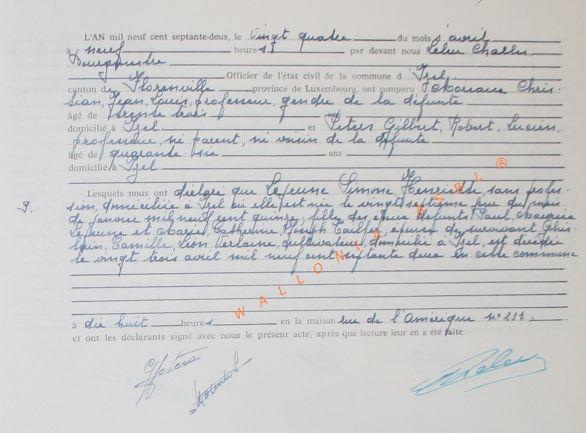 L'AN mil neuf cent septante-deux, le vingt quatre du mois d'avril
à neuf heures par devant nous Charles,
Bourgmestre
Officier de l'état civil de la commune d'Izel
canton de Florenville province de Luxembourg, ont comparu Chris-
tian, Jean, Louis, professeur, gendre de la défunte
âgé de trente trois
domicilié à Izel et Peters Gilbert, Robert, Lucien,
professeur, ni parent, ni voisin de la défunte
âgé de quarante ans
domicilié à Izel
9. Lesquels nous ont déclaré que Lejeune Simone Henriette, sans profes-
sion, domiciliée à Izel où elle est née le vingt septième jour du mois
de janvier mil neuf cent quinze, fille des époux défunts Paul, Maurice
Lejeune et Marie, Catherine, Joseph épouse du survivant Ghis-
lain, Camille, Léon Verlaine, cultivateur, domicilié à Izel, est décédée
le vingt trois avril mil neuf cent septante deux en cette commune
à dix huit heures en la maison rue de l'Amérique n° 237.
et ont les déclarants signé avec nous le présent acte, après que lecture leur en a été faite.
Peters
WALLONIA ASBL ®